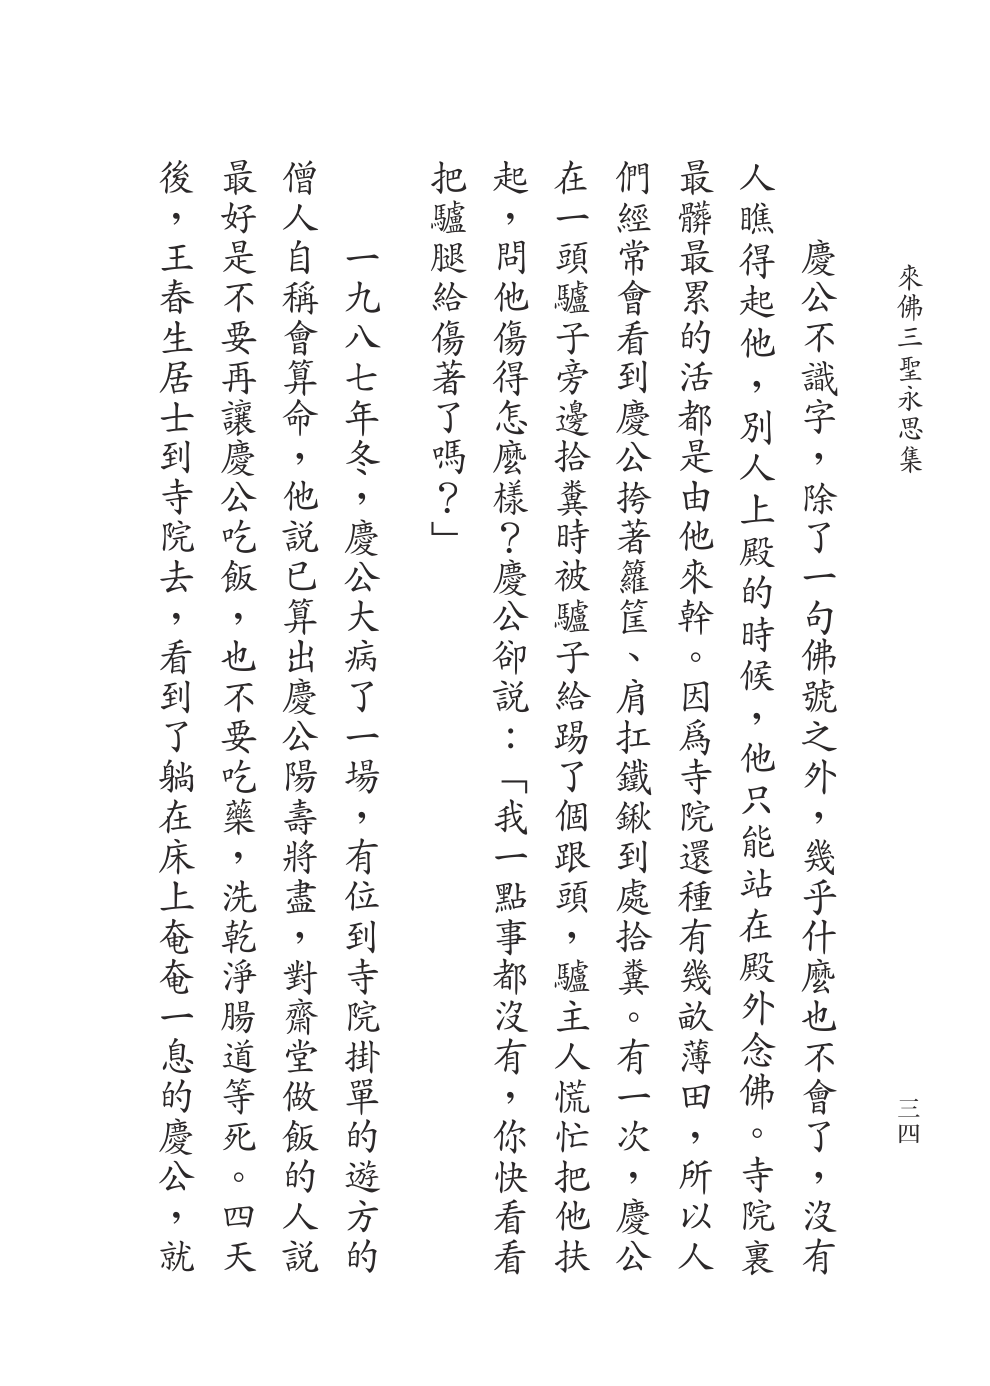 來佛三聖永思集
三四
慶公不識字，除了一句佛號之外，幾乎什麼也不會了，沒有
人瞧得起他，別人上殿的時候，他只能站在殿外念佛。寺院裏
最髒最累的活都是由他來幹。因爲寺院還種有幾畝薄田，所以人
們經常會看到慶公挎著籮筐、肩扛鐵鍬到處拾糞。有一次，慶公
在一頭驢子旁邊拾糞時被驢子給踢了個跟頭，驢主人慌忙把他扶
起，問他傷得怎麼樣？慶公卻説：「我一點事都沒有，你快看看
把驢腿給傷著了嗎？」
一九八七年冬，慶公大病了一場，有位到寺院掛單的遊方的
僧人自稱會算命，他説已算出慶公陽壽將盡，對齋堂做飯的人説
最好是不要再讓慶公吃飯，也不要吃藥，洗乾淨腸道等死。四天
後，王春生居士到寺院去，看到了躺在床上奄奄一息的慶公，就